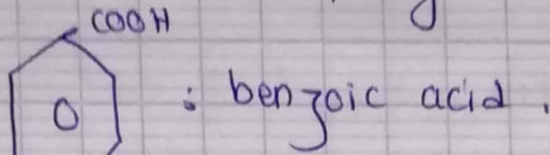 COOH
: benzoic acid.